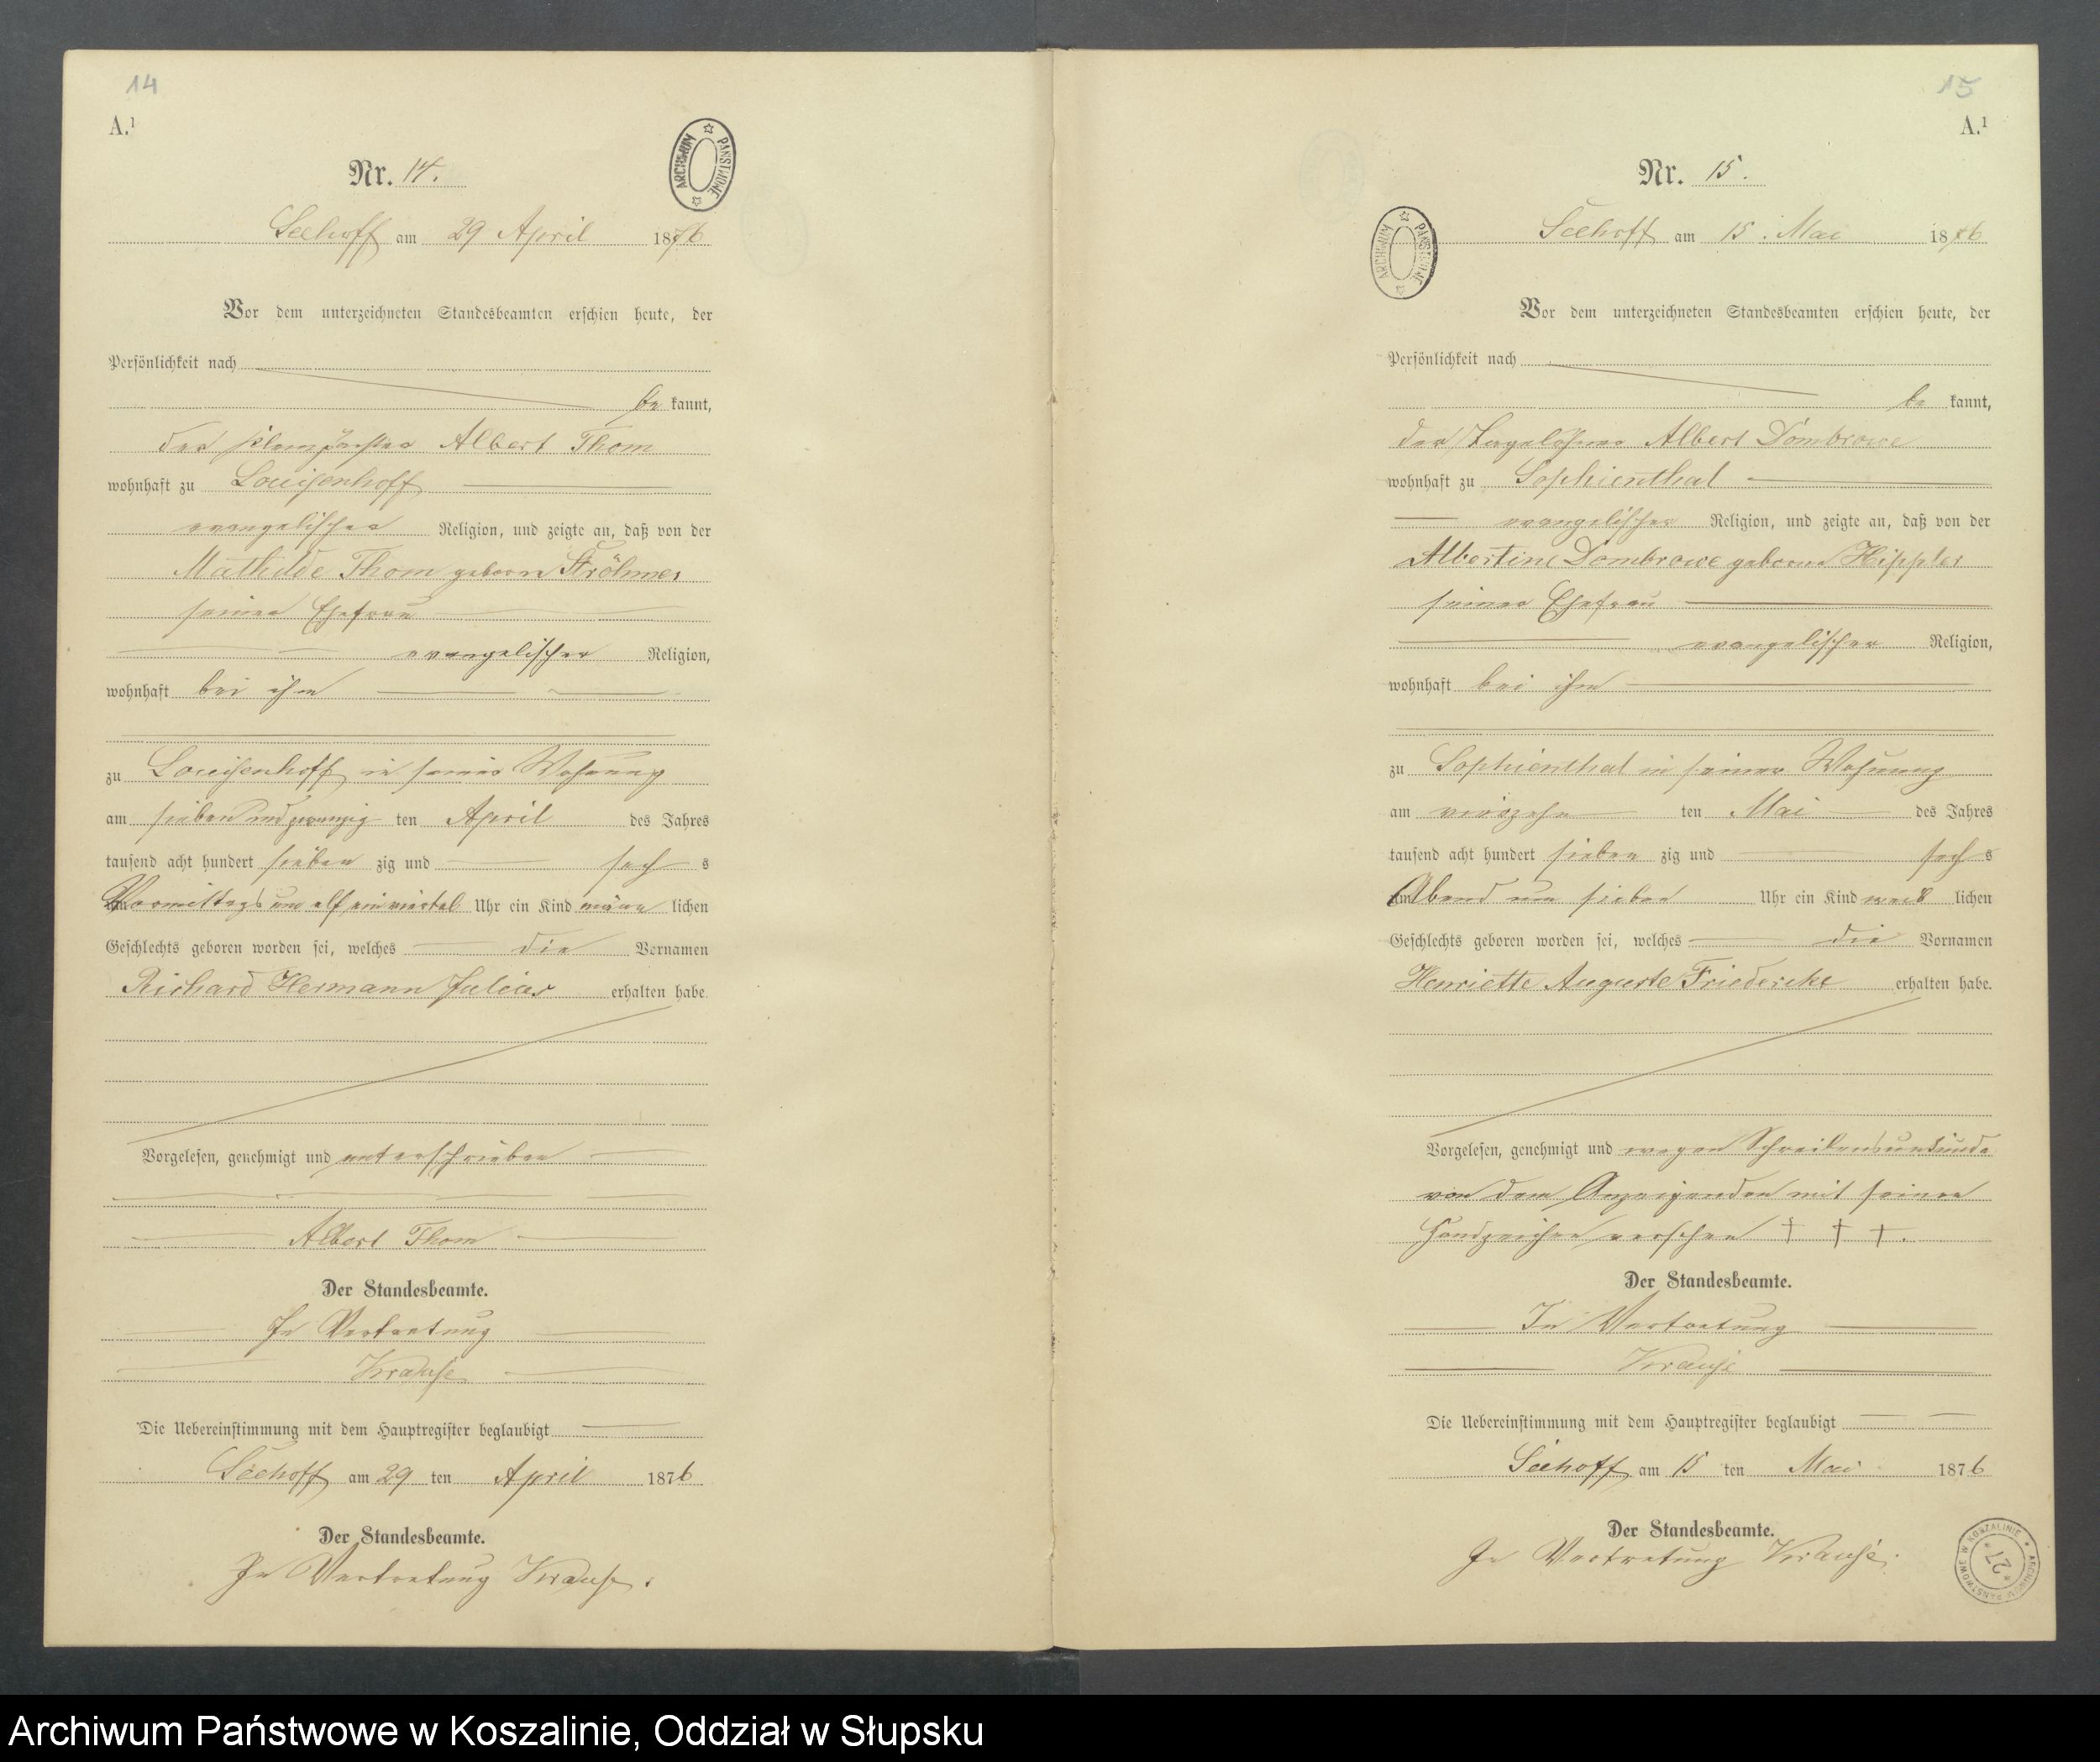 14
A.¹
Nr. 14.
ARCHIWUM PAŃSTWOWE
Seehoff am 29 April 1876
Vor dem unterzeichneten Standesbeamten erschien heute, der
Persönlichkeit nach
be kannt,
der Albert Thom
wohnhaft zu Louisenhoff
evangelischer Religion, und zeigte an, daß von der
Mathilde Thom geborne Ströhmer
seiner Ehefrau
evangelischer Religion,
wohnhaft bei ihm
zu Louisenhoff in seiner Wohnung
am sieben und zwanzig ten April des Jahres
tausend acht hundert sieben zig und sech s
Vormittags um elf ein viertel Uhr ein Kind männ lichen
Geschlechts geboren worden sei, welches die Vornamen
Richard Hermann Julius erhalten habe.
Vorgelesen, genehmigt und unterschrieben
Albert Thom
Der Standesbeamte.
In Vertretung
Krause
Die Uebereinstimmung mit dem Hauptregister beglaubigt
Seehoff am 29 ten April 1876
Der Standesbeamte.
In Vertretung Krause.
15
A.¹
Nr. 15.
ARCHIWUM PAŃSTWOWE
Seehoff am 15. Mai 1876
Vor dem unterzeichneten Standesbeamten erschien heute, der
Persönlichkeit nach
be kannt,
der Tagelöhner Albert Dombrowe
wohnhaft zu Sophienthal
evangelischer Religion, und zeigte an, daß von der
Albertine Dombrowe geborne Hippler
seiner Ehefrau
evangelischer Religion,
wohnhaft bei ihm
zu Sophienthal in seiner Wohnung
am vierzehn ten Mai des Jahres
tausend acht hundert sieben zig und sech s
Abend um sieben Uhr ein Kind weib lichen
Geschlechts geboren worden sei, welches die Vornamen
Henriette Auguste Friedericke erhalten habe.
Vorgelesen, genehmigt und wegen Schreibensunkunde
von dem Anzeigenden mit seinen
Handzeichen versehen † † †.
Der Standesbeamte.
In Vertretung
Krause
Die Uebereinstimmung mit dem Hauptregister beglaubigt
Seehoff am 15 ten Mai 1876
Der Standesbeamte.
In Vertretung Krause.
ARCHIWUM PAŃSTWOWE W KOSZALINIE
* 27 *
Archiwum Państwowe w Koszalinie, Oddział w Słupsku